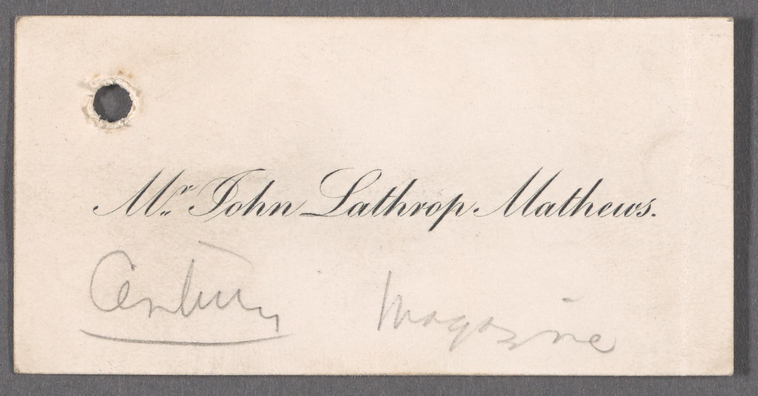 Mr. John Lathrop Mathews.
Century Magazine